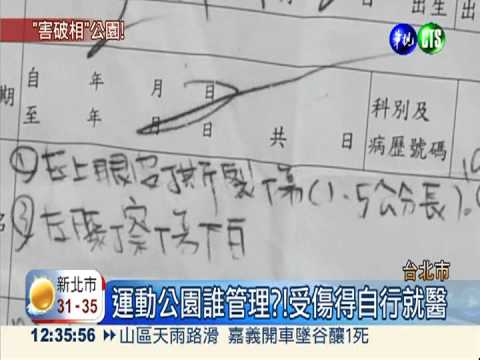 "害破相"公園!
華視 CTS
出生
出
期
自 年 月 日
至 年 月 日
共 日
科別及
病歷號碼
①左上眼容撕裂傷(1.5公分長).
名
③左腰擦傷下頁
台北市
新北市
31-35
運動公園誰管理?!受傷得自行就醫
12:35:56
山區天雨路滑 嘉義開車墜谷釀1死